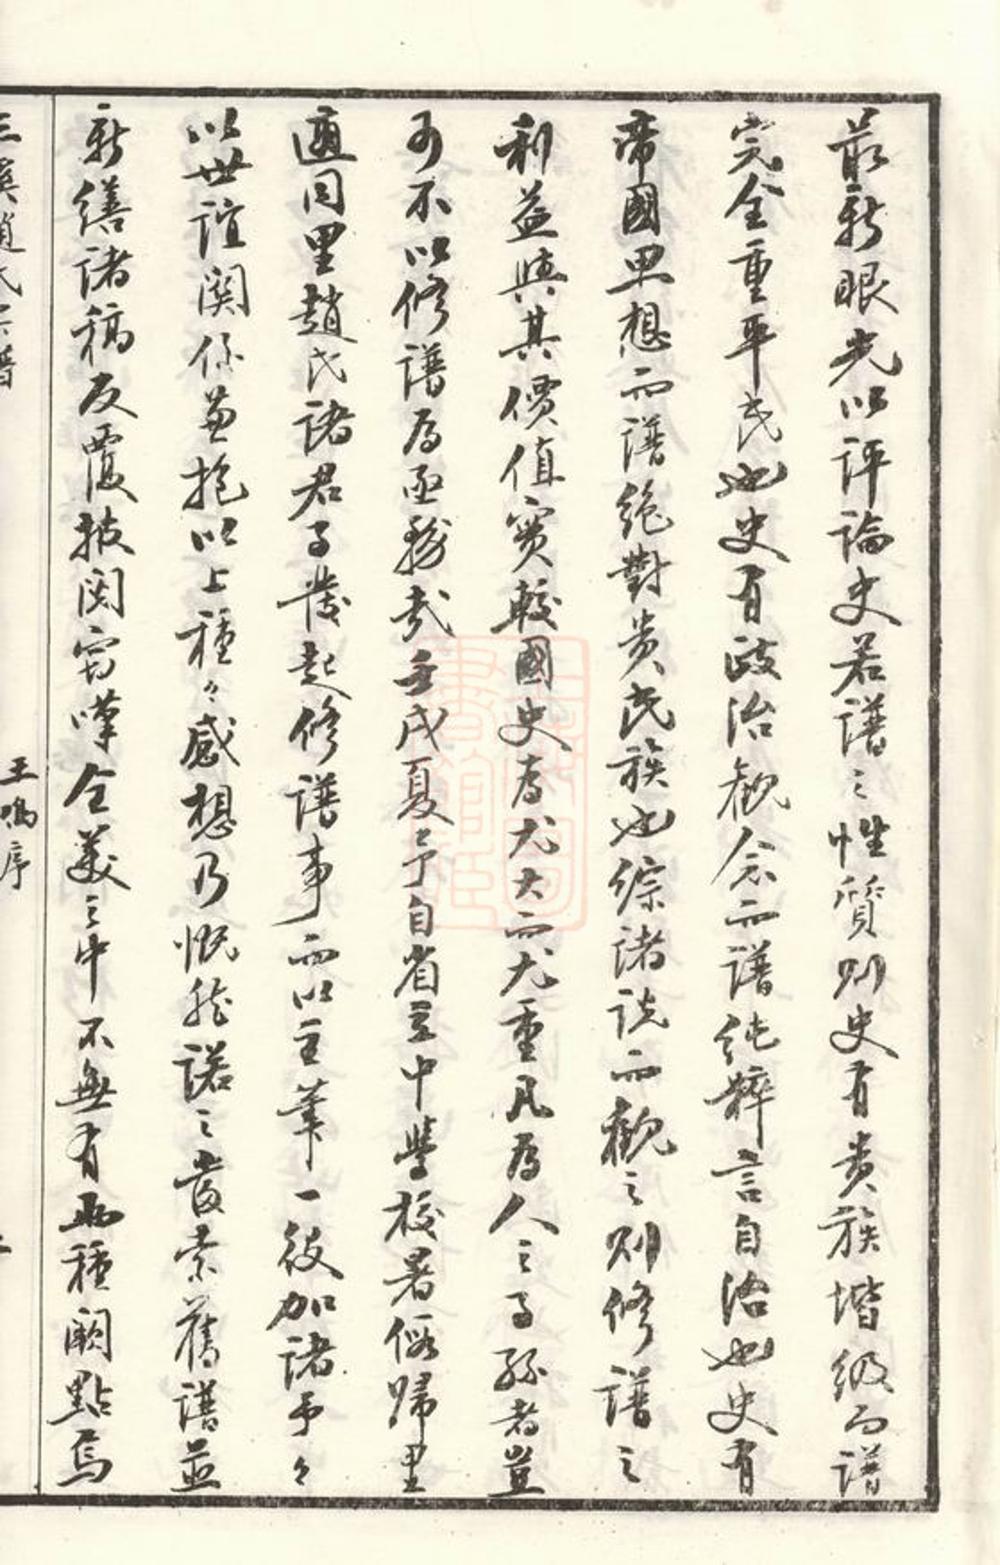 最新眼光以評論史若譜之性質則史有貴族堦級而譜
完全重平民也史有政治觀念而譜純粹言自治也史有
帝國思想而譜絶對貴民族也綜諸説而觀之則修譜之
利益與其價值實較國史為尤大而尤重凡為人之子孫者豈
可不以修譜為亟務哉壬戌夏予自省立中學校暑假歸里
適同里趙氏諸君子發起修譜事而以主筆一役加諸予々
以世誼関係兼抱以上種々感想乃慨然諾之爰索舊譜並
新繕諸稿反覆披閲窃嘆全美之中不無有兩種闕點焉
三溪趙氏宗譜
王鳴序